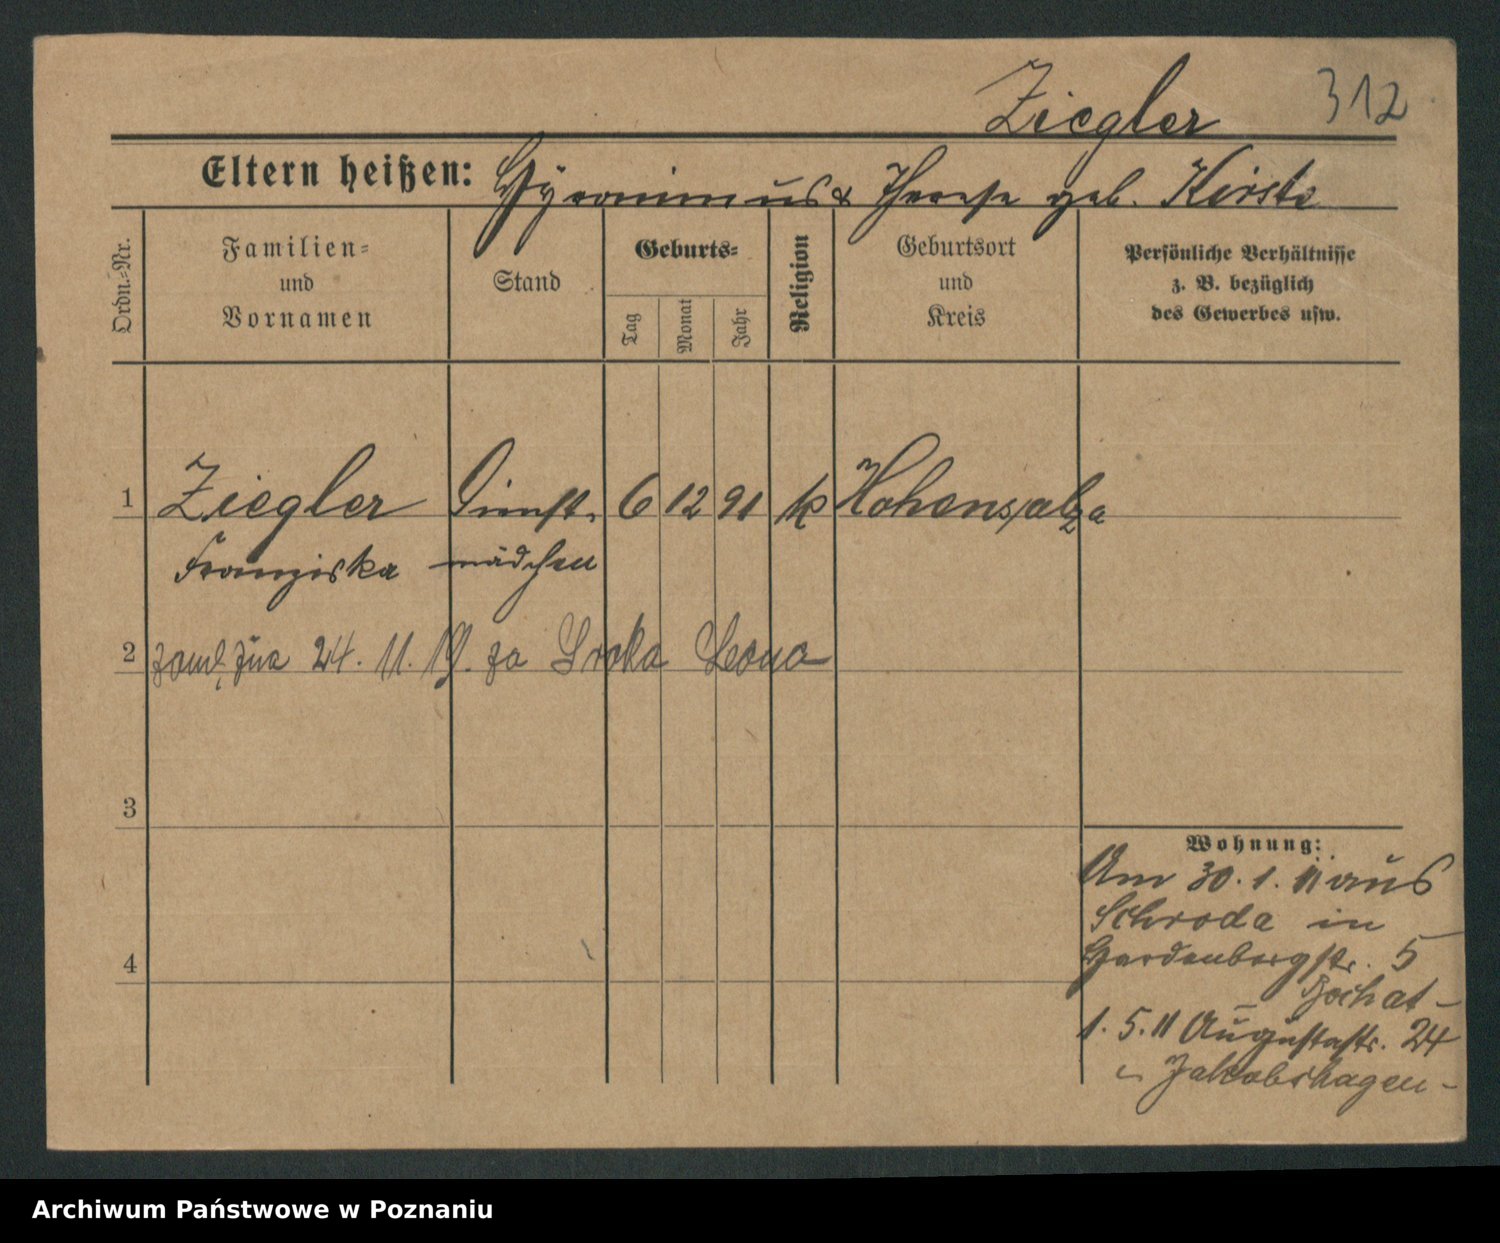 Ziegler 312
Eltern heißen: Hyronimus & Therese geb. Kirste
Ordn.-Nr.
Familien-
und
Vornamen
Stand
Geburts-
Tag
Monat
Jahr
Religion
Geburtsort
und
Kreis
Persönliche Verhältnisse
z. B. bezüglich
des Gewerbes usw.
1 Ziegler Dienst- 6 12 91 k Hohensalza
Franziska mädchen
2 24. 11. 19. za Sroka Leona
3
4
Wohnung:
Am 30. 1. 11 aus
Schroda in
Hardenbergstr. 5
1. 5. 11 Augustastr. 24
Jakobshagen-
Archiwum Państwowe w Poznaniu